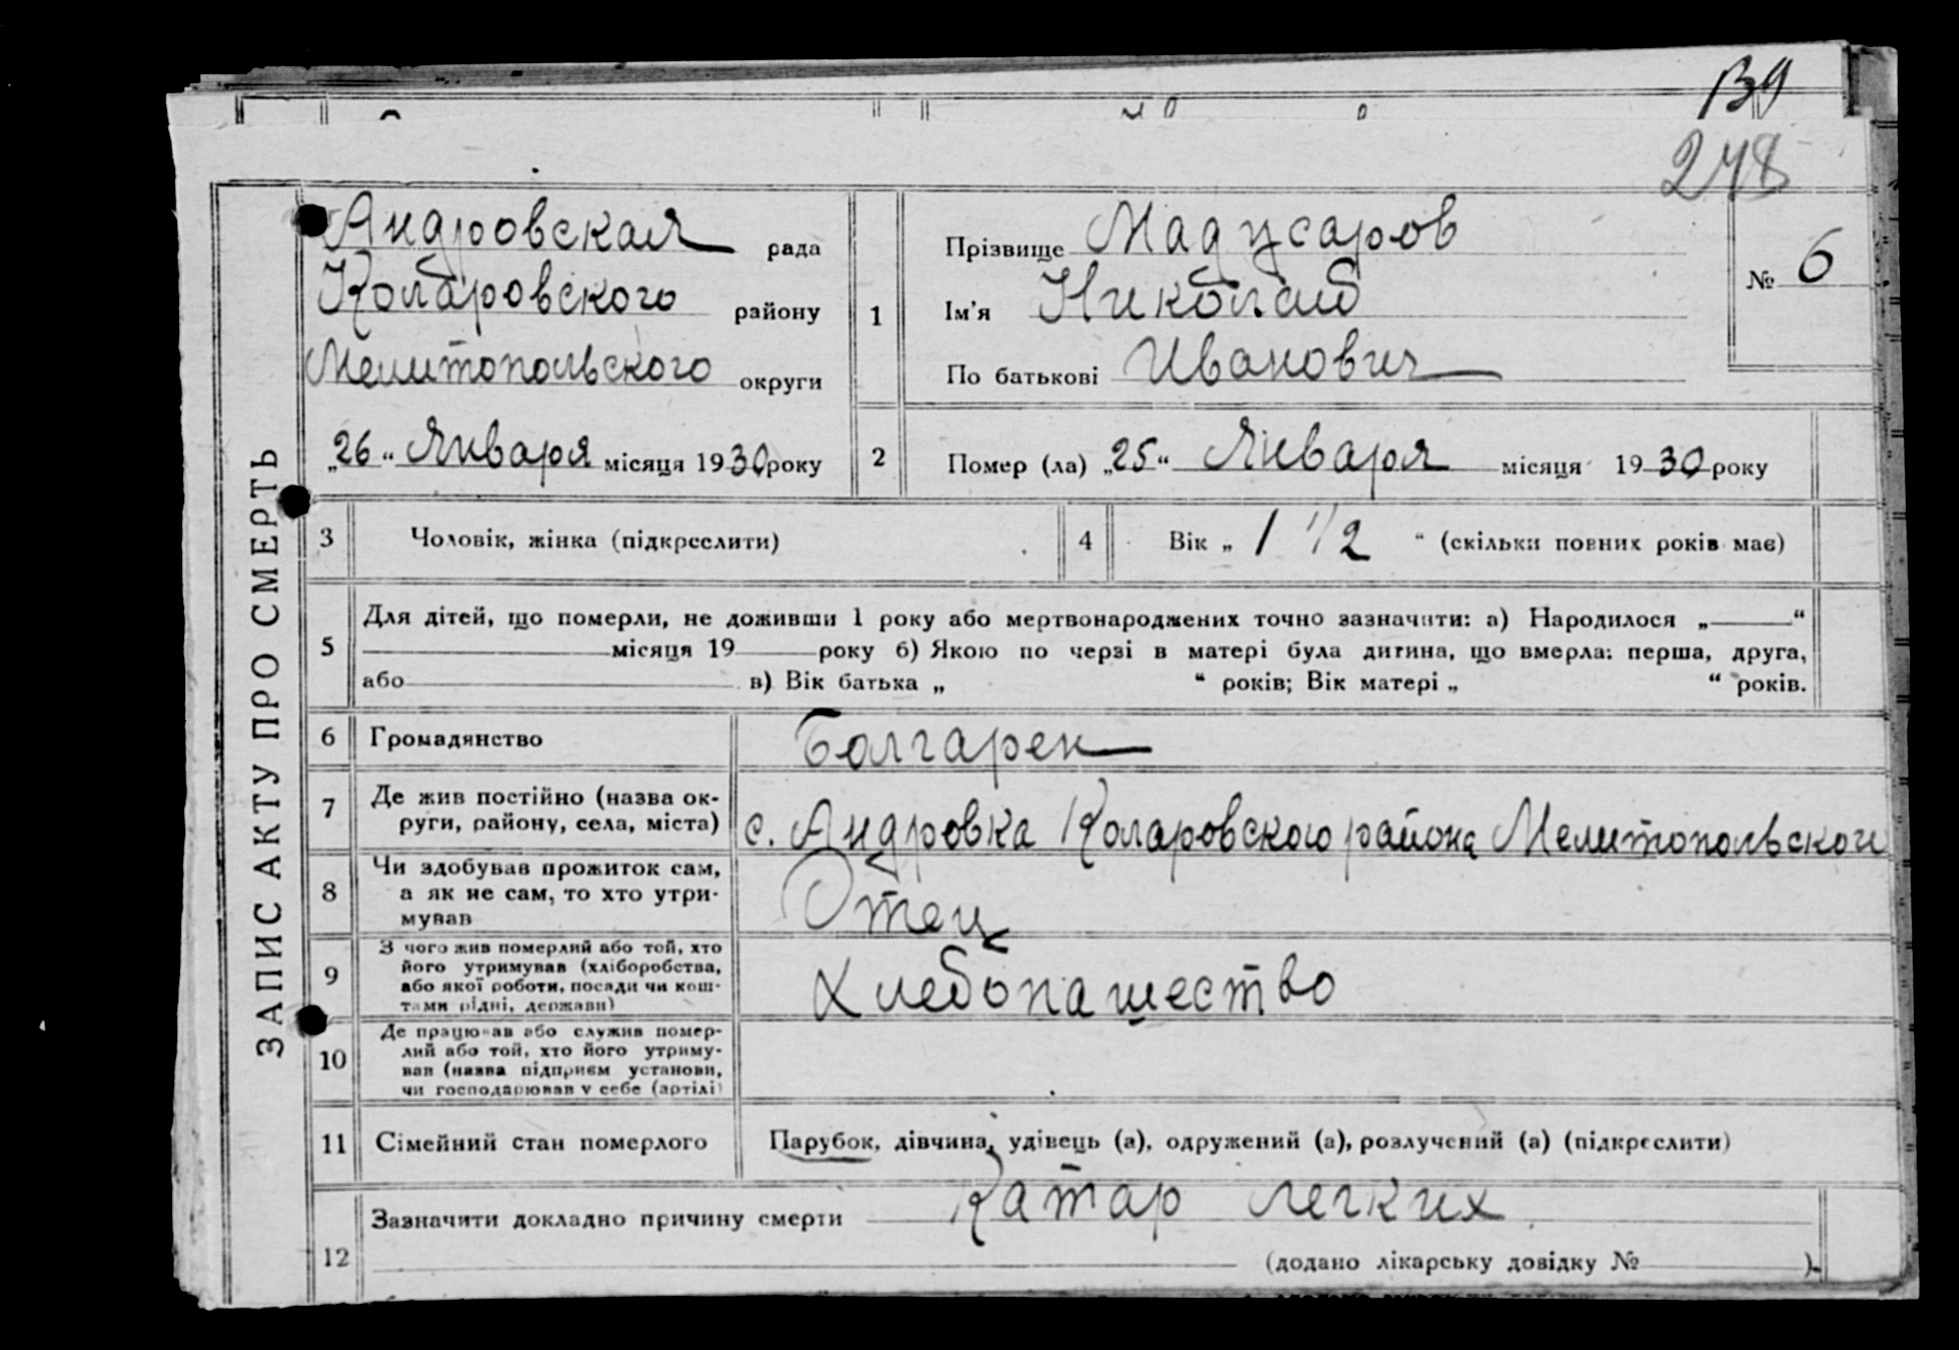 139
248
ЗАПИС АКТУ ПРО СМЕРТЬ
Андровская рада
Коларовского району
Мелитопольского округи
„26“ Января місяця 1930 року
1
Прізвище Мадусаров
Ім'я Николай
По батькові Иванович
№ 6
2
Помер (ла) „25“ Января місяця 1930 року
3 Чоловік, жінка (підкреслити)
4 Вік „ 1 1/2 “ (скільки повних років має)
5 Для дітей, що померли, не доживши 1 року або мертвонароджених точно зазначити: а) Народилося „ “
місяця 19 року б) Якою по черзі в матері була дитина, що вмерла: перша, друга,
або в) Вік батька „ “ років; Вік матері „ “ років.
6 Громадянство Болгарен
7 Де жив постійно (назва ок-
руги, району, села, міста) с. Андровка Коларовского района Мелитопольского
8 Чи здобував прожиток сам,
а як не сам, то хто утри-
мував Отец
9 З чого жив померлий або той, хто
його утримував (хліборобства,
або якої роботи, посади чи кош-
тами рідні, держави) Хлебопашество
10 Де працював або служив помер-
лий або той, хто його утриму-
вав (назва підприєм установи,
чи господарював у себе (артілі)
11 Сімейний стан померлого Парубок, дівчина, удівець (а), одружений (а), розлучений (а) (підкреслити)
12 Зазначити докладно причину смерти Катар легких
(додано лікарську довідку № ).